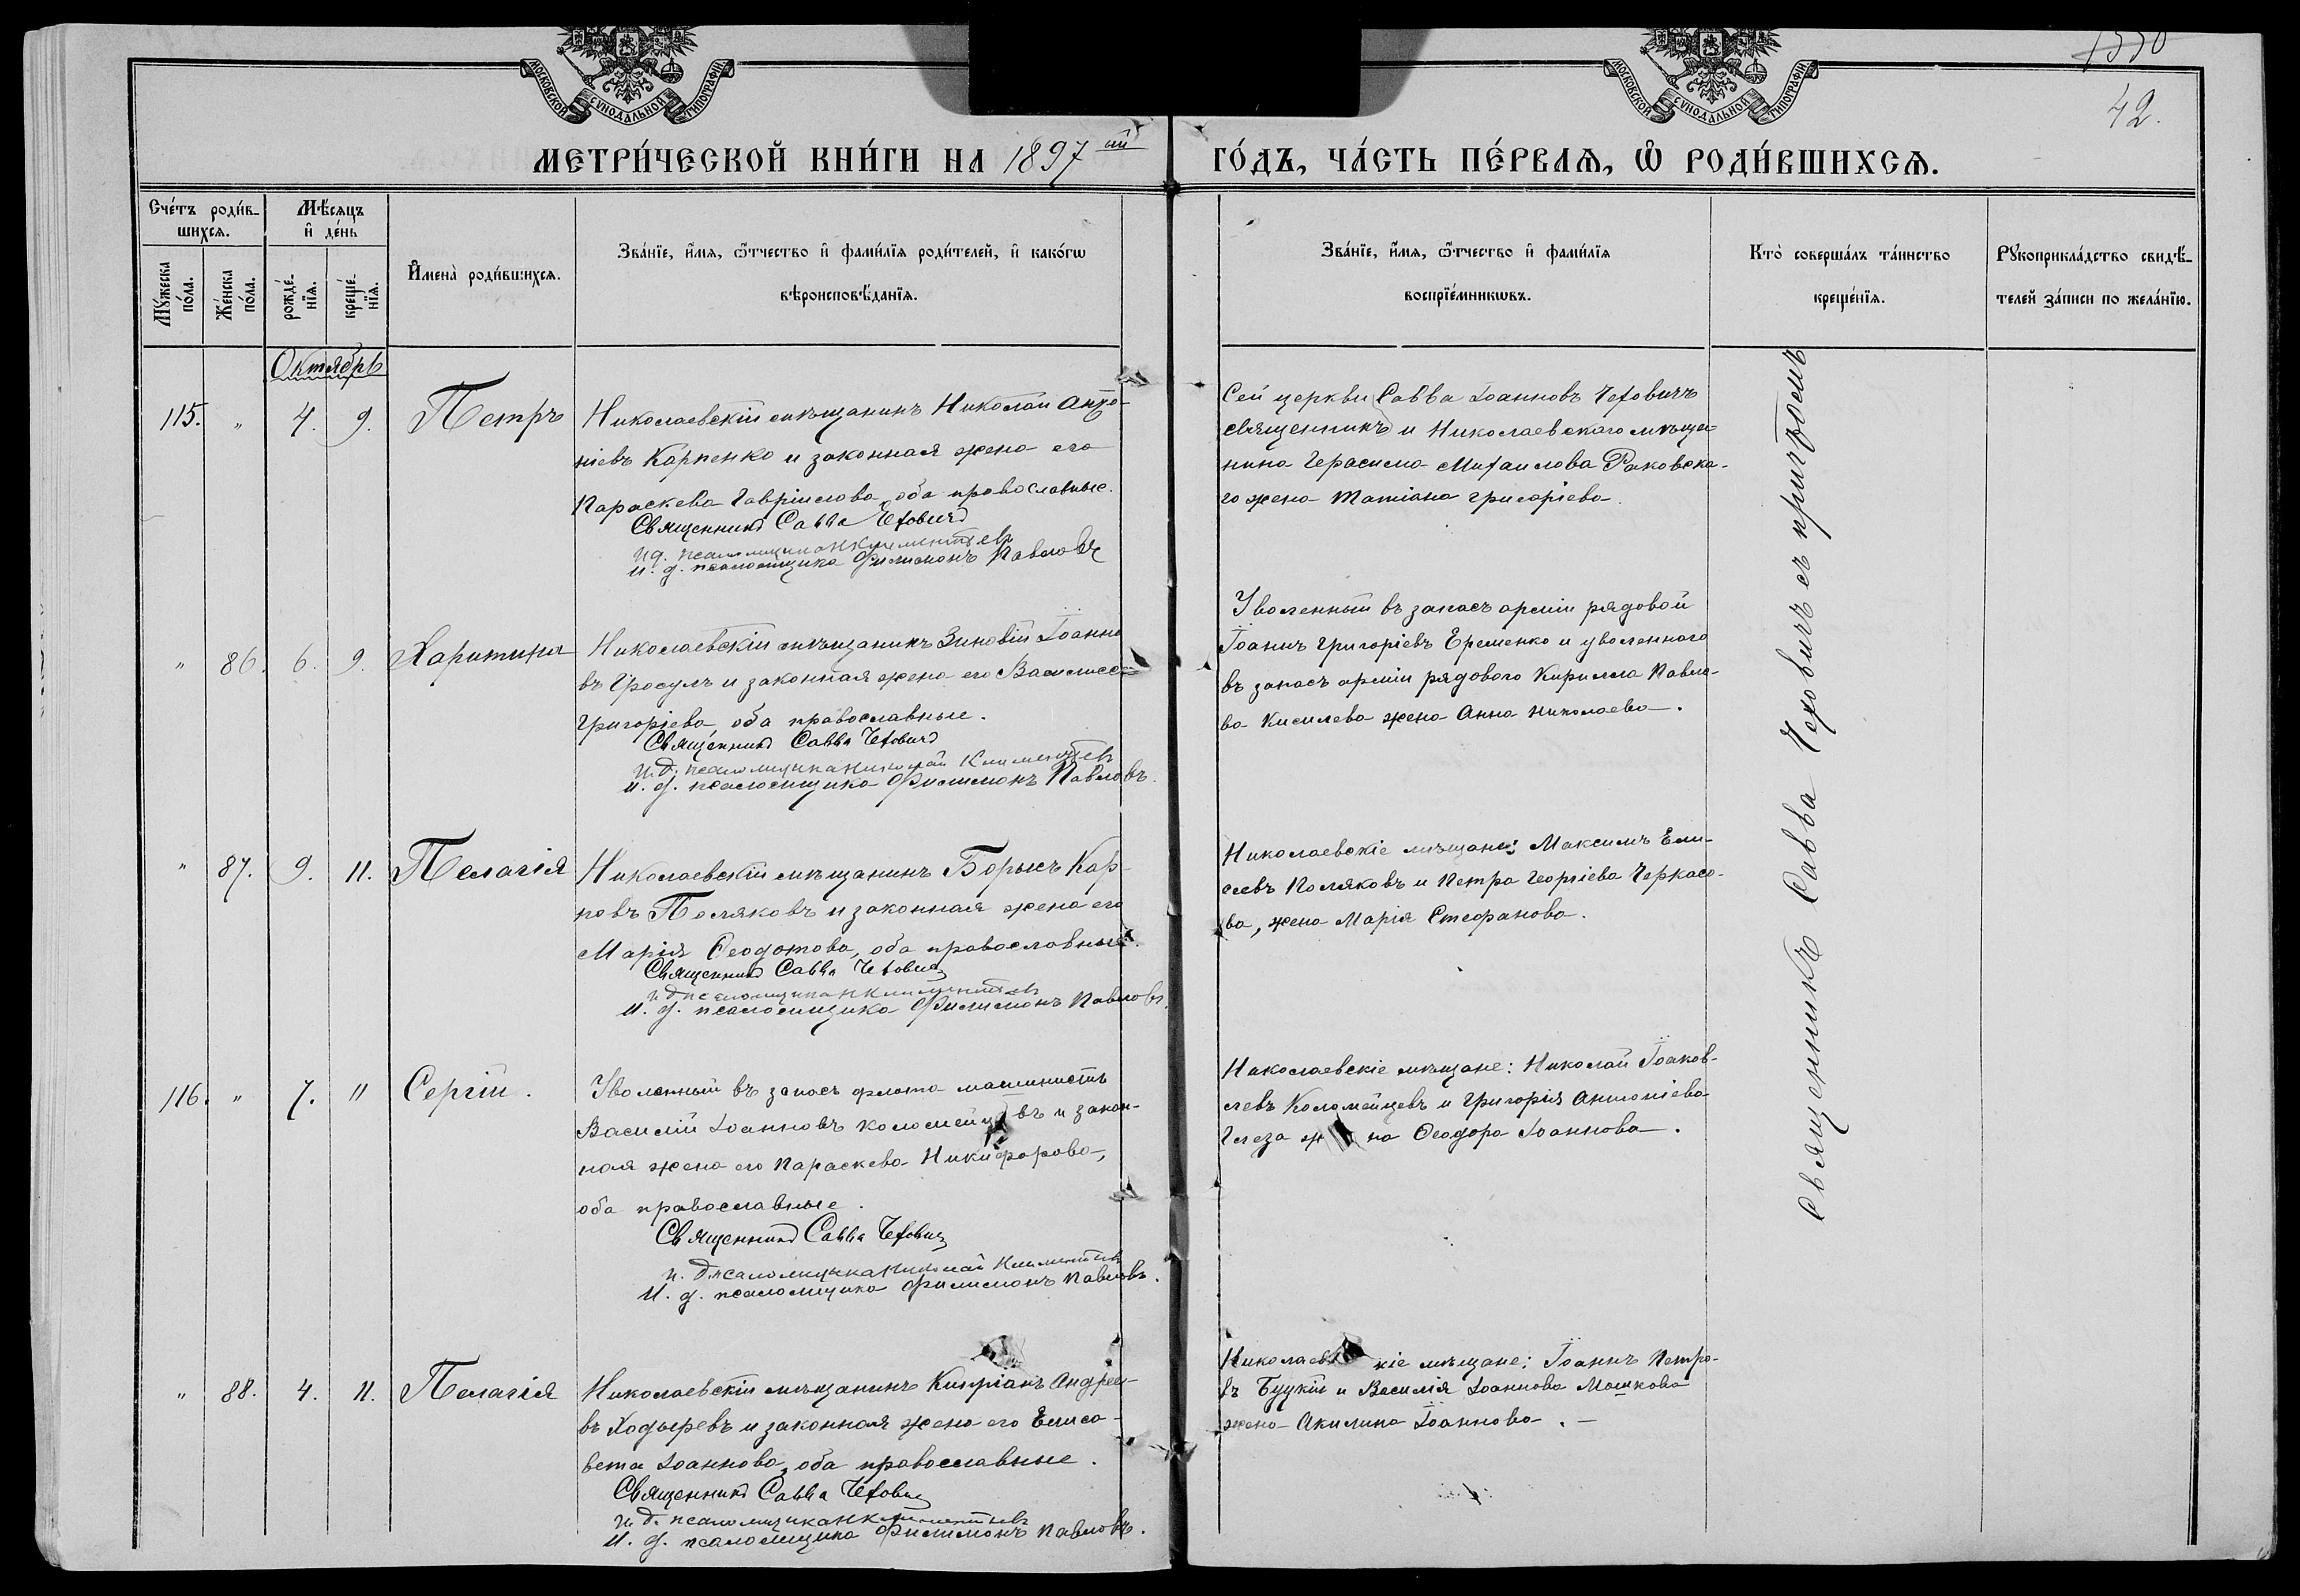 МОСКОВСКОЙ СѴНОДАЛЬНОЙ ТИПОГРАФІИ
МОСКОВСКОЙ СѴНОДАЛЬНОЙ ТИПОГРАФІИ
1330
42.
МЕТРИ́ЧЕСКОЙ КНИ́ГИ НА 1897 ый ГО́ДЪ, ЧА́СТЬ ПЕ́РВАѦ, Ѡ҆ РОДИ́ВШИХСѦ.
Сче́тъ роди́в-
шихсѧ.
Мѣ́сѧцъ
и҆ де́нь
Мꙋ́жеска
по́ла.
Же́нска
по́ла.
рожде́-
нїѧ.
креще́-
нїѧ.
И҆мена̀ роди́вшихсѧ.
Зва́нїе, и҆́мѧ, ѻ҆́тчество и҆ фами́лїѧ роди́телей, и҆ како́гѡ
вѣроисповѣ́данїѧ.
Зва́нїе, и҆́мѧ, ѻ҆́тчество и҆ фами́лїѧ
воспрїе́мникѡвъ.
Кто̀ соверша́лъ та́инство
креще́нїѧ.
Рꙋкоприкла́дство свидѣ́-
телей за́писи по жела́нїю.
Октябрь
115. " 4. 9. Петръ
Николаевскій мѣщанинъ Николай Анто-
ніевъ Карпенко и законная жена его
Параскева Гавріилова, оба православные.
Священникъ Савва Чеховичъ
И. д. псаломщика Н Климентьевъ
И. д. псаломщика Филимонъ Павловъ
Сей церкви Савва Іоанновъ Чеховичъ
священникъ и Николаевскаго мѣща-
нина Герасима Михаилова Раковска-
го жена Татіана Григоріева.
" 86. 6. 9. Харитина
Николаевскій мѣщанинъ Зиновій Іоанно
въ Гросулъ и законная жена его Василисса
Григоріева, оба православные.
Священникъ Савва Чеховичъ
И. д. псаломщика Николай Климентьевъ
И. д. псаломщика Филимонъ Павловъ.
Уволенный въ запасъ арміи рядовой
Іоаннъ Григоріевъ Еременко и уволеннаго
въ запасъ арміи рядового Кирилла Павло-
ва Кисилева жена Анна Николаева.
" 87. 9. 11. Пелагія
Николаевскій мѣщанинъ Борисъ Кар-
повъ Поляковъ и законная жена его
Марія Ѳеодотова, оба православные.
Священникъ Савва Чеховичъ
И д псаломщика Н Климентьевъ
И. д. псаломщика Филимонъ Павловъ.
Николаевскіе мѣщане: Максимъ Ели-
сеевъ Поляковъ и Петра Георгіева Черкасо-
ва, жена Марія Стефанова.
116. " 7. 11 Сергій.
Уволенный въ запасъ флота машинистъ
Василій Іоанновъ Коломейцевъ и закон-
ная жена его Параскева Никифорова,
оба православные.
Священникъ Савва Чеховичъ
И. д. псаломщика Николай Климентьевъ
И. д. псаломщика Филимонъ Павловъ.
Николаевскіе мѣщане: Николай Іоаков-
левъ Коломейцевъ и Григорія Антоніева
жена Ѳеодора Іоаннова.
" 88. 4. 11. Пелагія
Николаевскій мѣщанинъ Кипріанъ Андрее-
въ Ходыревъ и законная жена его Елиса-
вета Іоаннова, оба православные.
Священникъ Савва Чеховичъ
И. д. псаломщика Н Климентьевъ
И. д. псаломщика Филимонъ Павловъ.
Николаевскіе мѣщане: Іоаннъ Петро-
въ Буцкій и Василія Іоаннова Машкова
жена Акилина Іоаннова.
Священникъ Савва Чеховичъ съ причтомъ